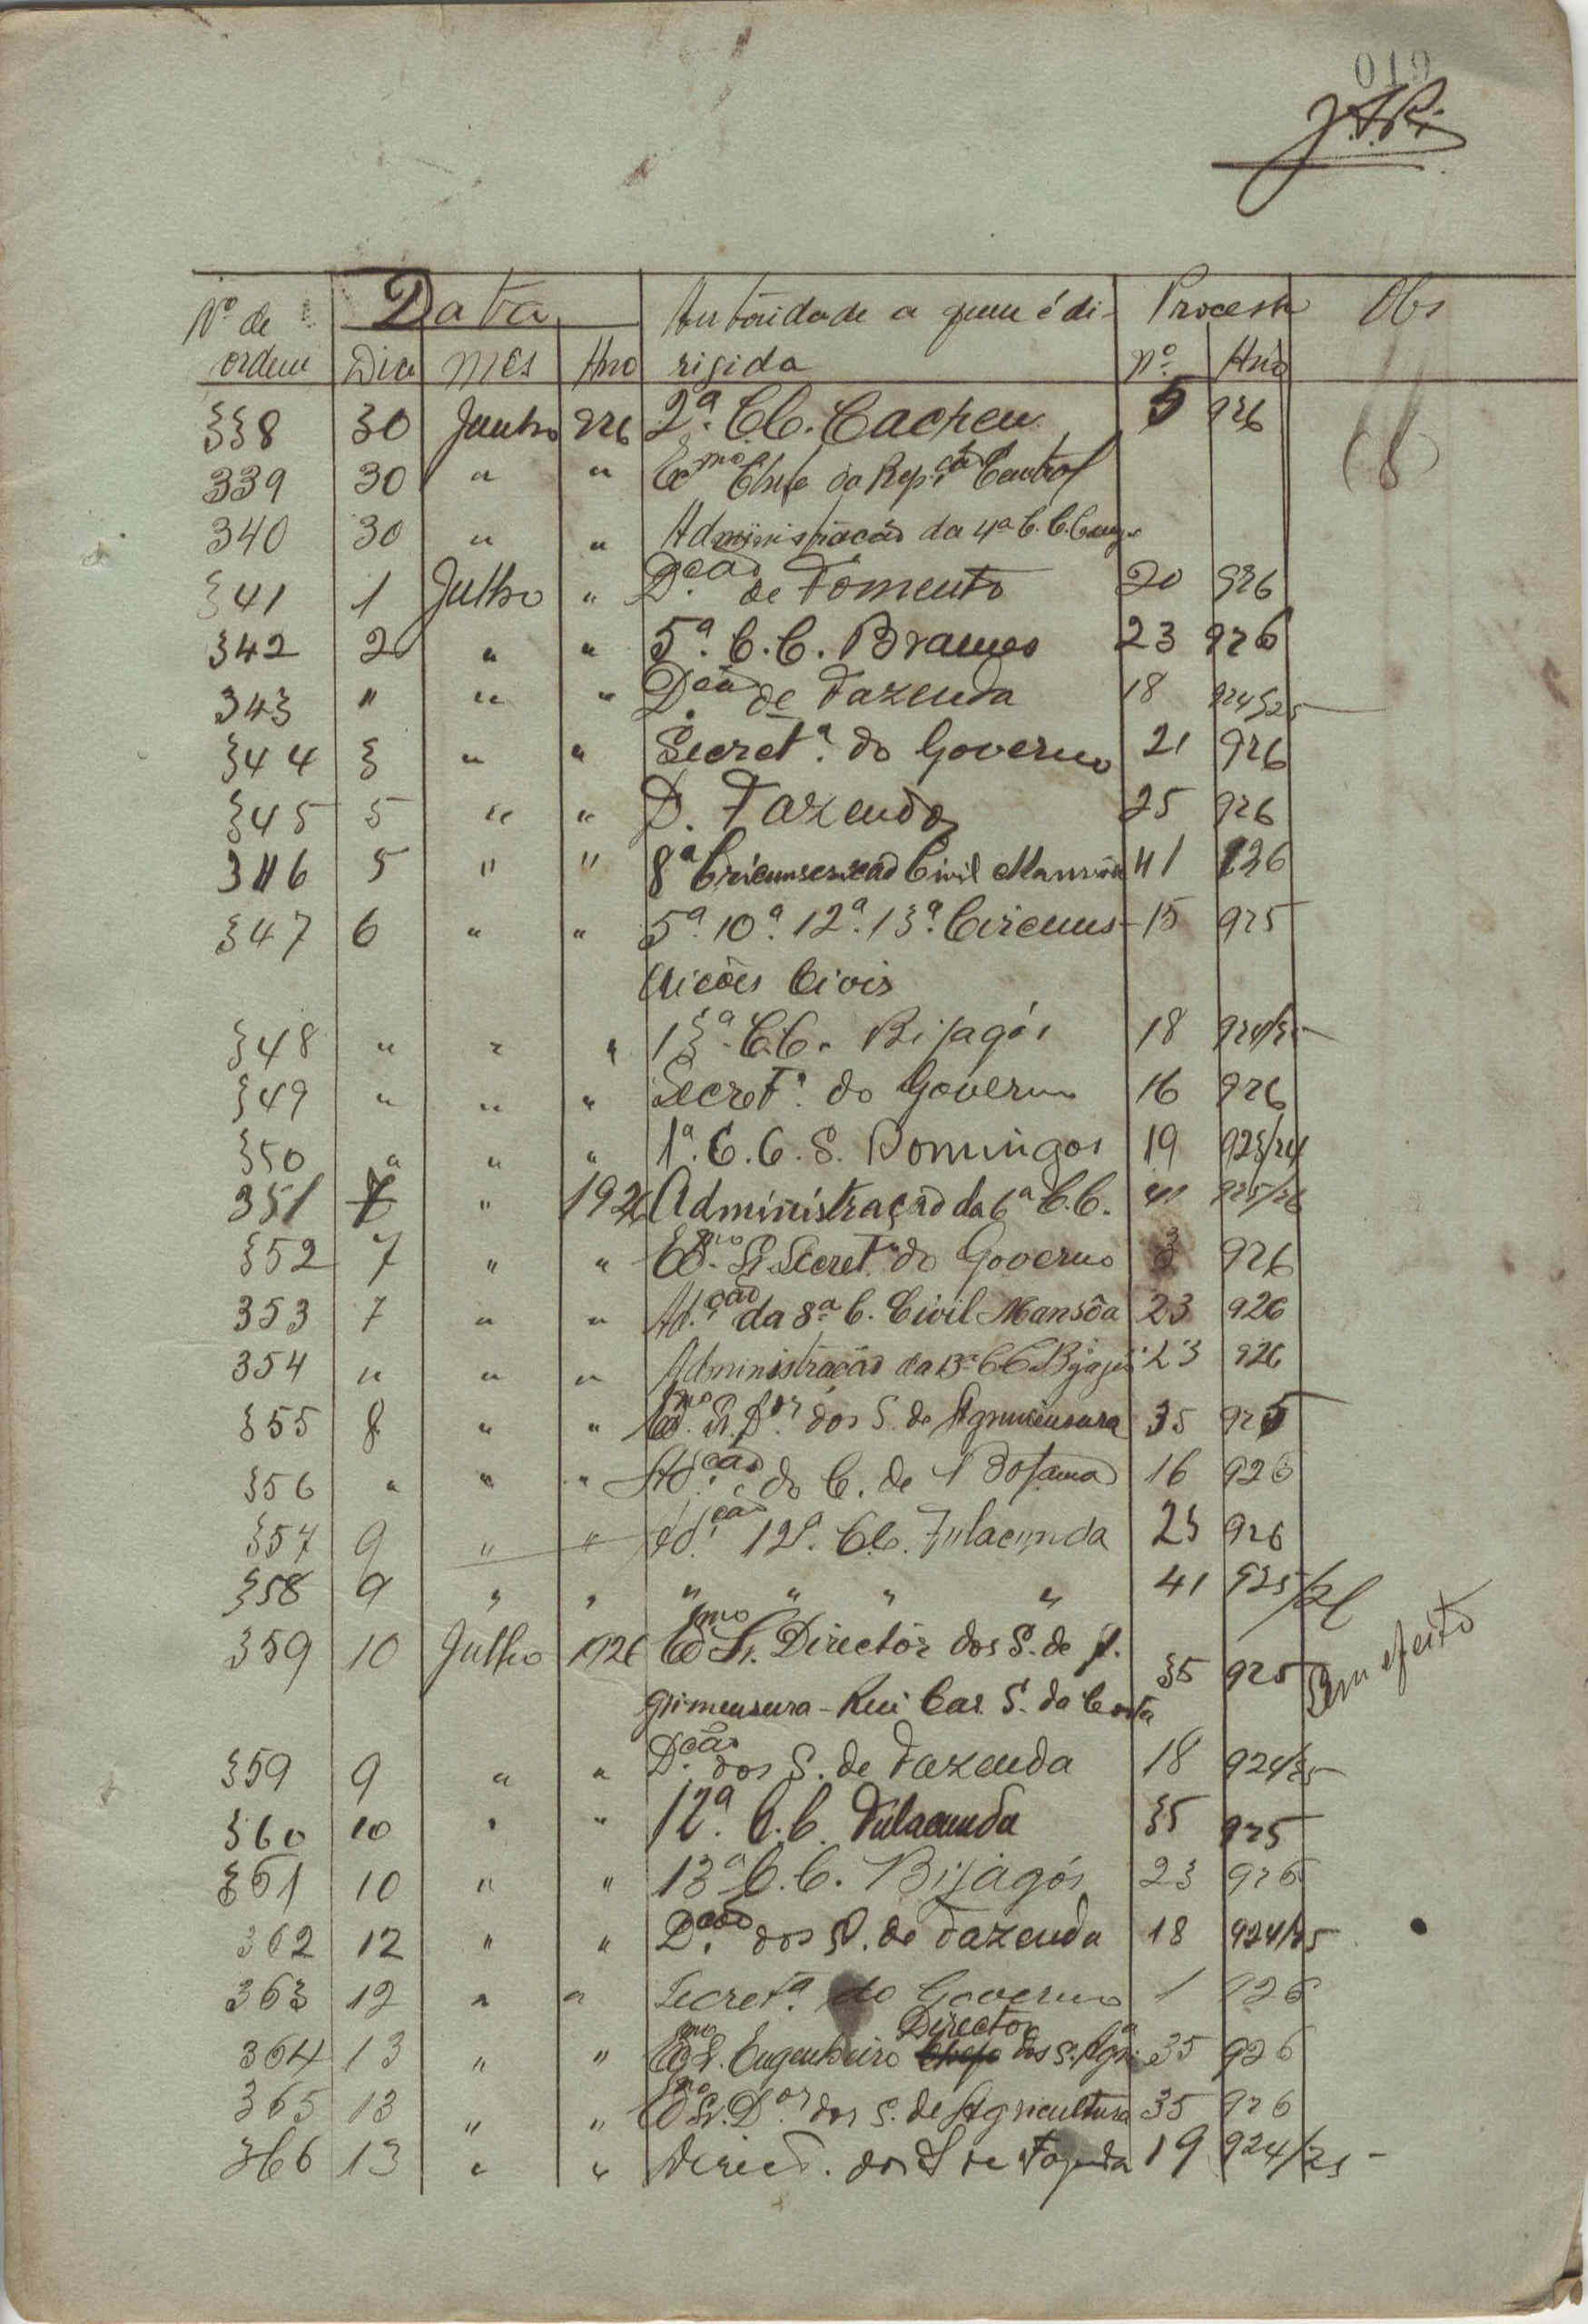 019
Nº de Data Autoridade a quem é di- Processo Obs
ordem Dia mês Ano rigida nº. Ano
338 30 Junho 926 2ª. C.C. Cacheu 5 926
339 30 " " Exmo Chefe da Rep.ção Central
340 30 " " Administração da 4ª C.C.
341 1 Julho " D.ção de Fomento 20 926
342 2 " " 5ª. C.C. Brames 23 926
343 " " " D.ção de Fazenda 18 924/25
344 3 " " Secretª. do Governo 21 926
345 5 " " D. Fazenda 25 926
346 5 " " 8ª Circunscrição Civil Mansôa 41 926
347 6 " " 5ª. 10ª. 12ª. 13ª. Circuns- 15 925
crições Civis
348 " " " 13ª. C.C. Bijagós 18 924/25
349 " " " Secretª. do Governo 16 926
350 " " " 1ª. C.C. S. Domingos 19 923/24
351 7 " 1926 Administração da 6ª C.C. 41 925/26
352 7 " " Exmo. Sr. Secret.º do Governo 3 926
353 7 " " Ad.ção da 8ª C. Civil Mansôa 23 926
354 " " " Administração da 13ª C.C. Bijagós 23 926
355 8 " " Exmo. Sr. D.or dos S. de Agrimensura 35 925
356 " " " Ad.ção do C. de Bolama 16 926
357 9 " " Ad.ção 12ª. C.C. Fulacunda 23 926
358 9 " " " " " " 41 925/26
359 10 Julho 1926 Exmo Sr. Director dos S. de A- 35 925 Sem efeito
grimensura - Rui Car. S. da Costa
359 9 " " D.ção dos S. de Fazenda 18 924/25
360 10 " " 12ª. C.C. Fulacunda 35 925
361 10 " " 13ª C.C. Bijagós 23 926
362 12 " " D.ção dos S. de Fazenda 18 924/25
363 12 " " Secretª. do Governo 1 926
Director
364 13 " " Exmo Sr. Engenheiro Chefe dos S. Agr.ª 35 926
365 13 " " Exmo Sr. D.or dos S. de Agricultura 35 926
366 13 " " Direcç. dos S de Fazenda 19 924/25